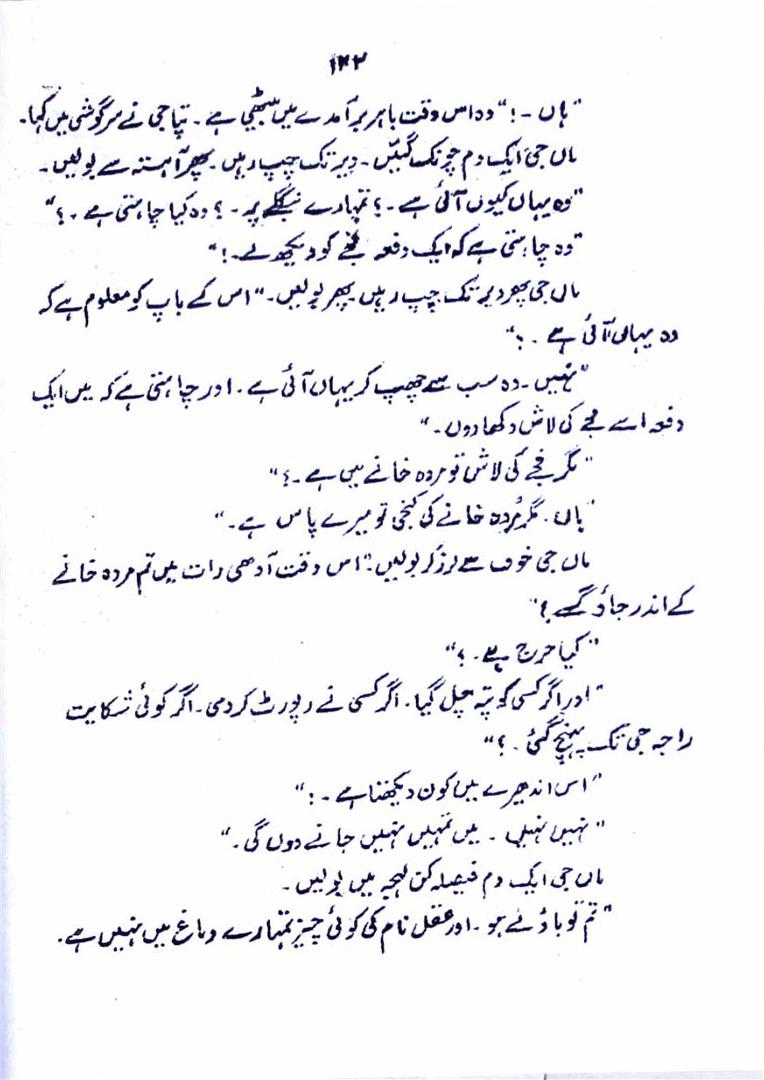 ۱۴۲
"ہاں -!" وہ اس وقت باہر برآمدے میں بیٹھی ہے ۔ پتا جی نے سرگوشی میں کہا۔
ماں جی ایک دم چونک گئیں ۔ دیر تک چپ رہیں ۔ پھر آہستہ سے بولیں ۔
"وہ یہاں کیوں آئی ہے ۔؟ تمہارے بنگلے پہ ۔؟ وہ کیا چاہتی ہے ۔؟"
"وہ چاہتی ہے کہ ایک دفعہ فجے کو دیکھ لے ۔!"
ماں جی پھر دیر تک چپ رہیں پھر بولیں ۔ "اس کے باپ کو معلوم ہے کہ
وہ یہاں آئی ہے ۔؟"
"نہیں ۔ وہ سب سے چھپ کر یہاں آئی ہے ۔ اور چاہتی ہے کہ میں ایک
دفعہ اسے فجے کی لاش دکھا دوں ۔"
"مگر فجے کی لاش تو مردہ خانے میں ہے ۔؟"
"ہاں ۔ مگر مُردہ خانے کی کنجی تو میرے پاس ہے ۔"
ماں جی خوف سے لرز کر بولیں ۔ "اس وقت آدھی رات میں تم مردہ خانے
کے اندر جاؤ گے ؟"
"کیا حرج ہے ۔؟"
"اور اگر کسی کو پتہ چل گیا ۔ اگر کسی نے رپورٹ کر دی ۔ اگر کوئی شکایت
راجہ جی تک پہنچ گئی ۔؟"
"اس اندھیرے میں کون دیکھتا ہے ۔؟"
"نہیں نہیں ۔ میں تمہیں نہیں جانے دوں گی ۔"
ماں جی ایک دم فیصلہ کن لہجہ میں بولیں ۔
"تم تو باؤلے ہو ۔ اور عقل نام کی کوئی چیز تمہارے دماغ میں نہیں ہے ۔